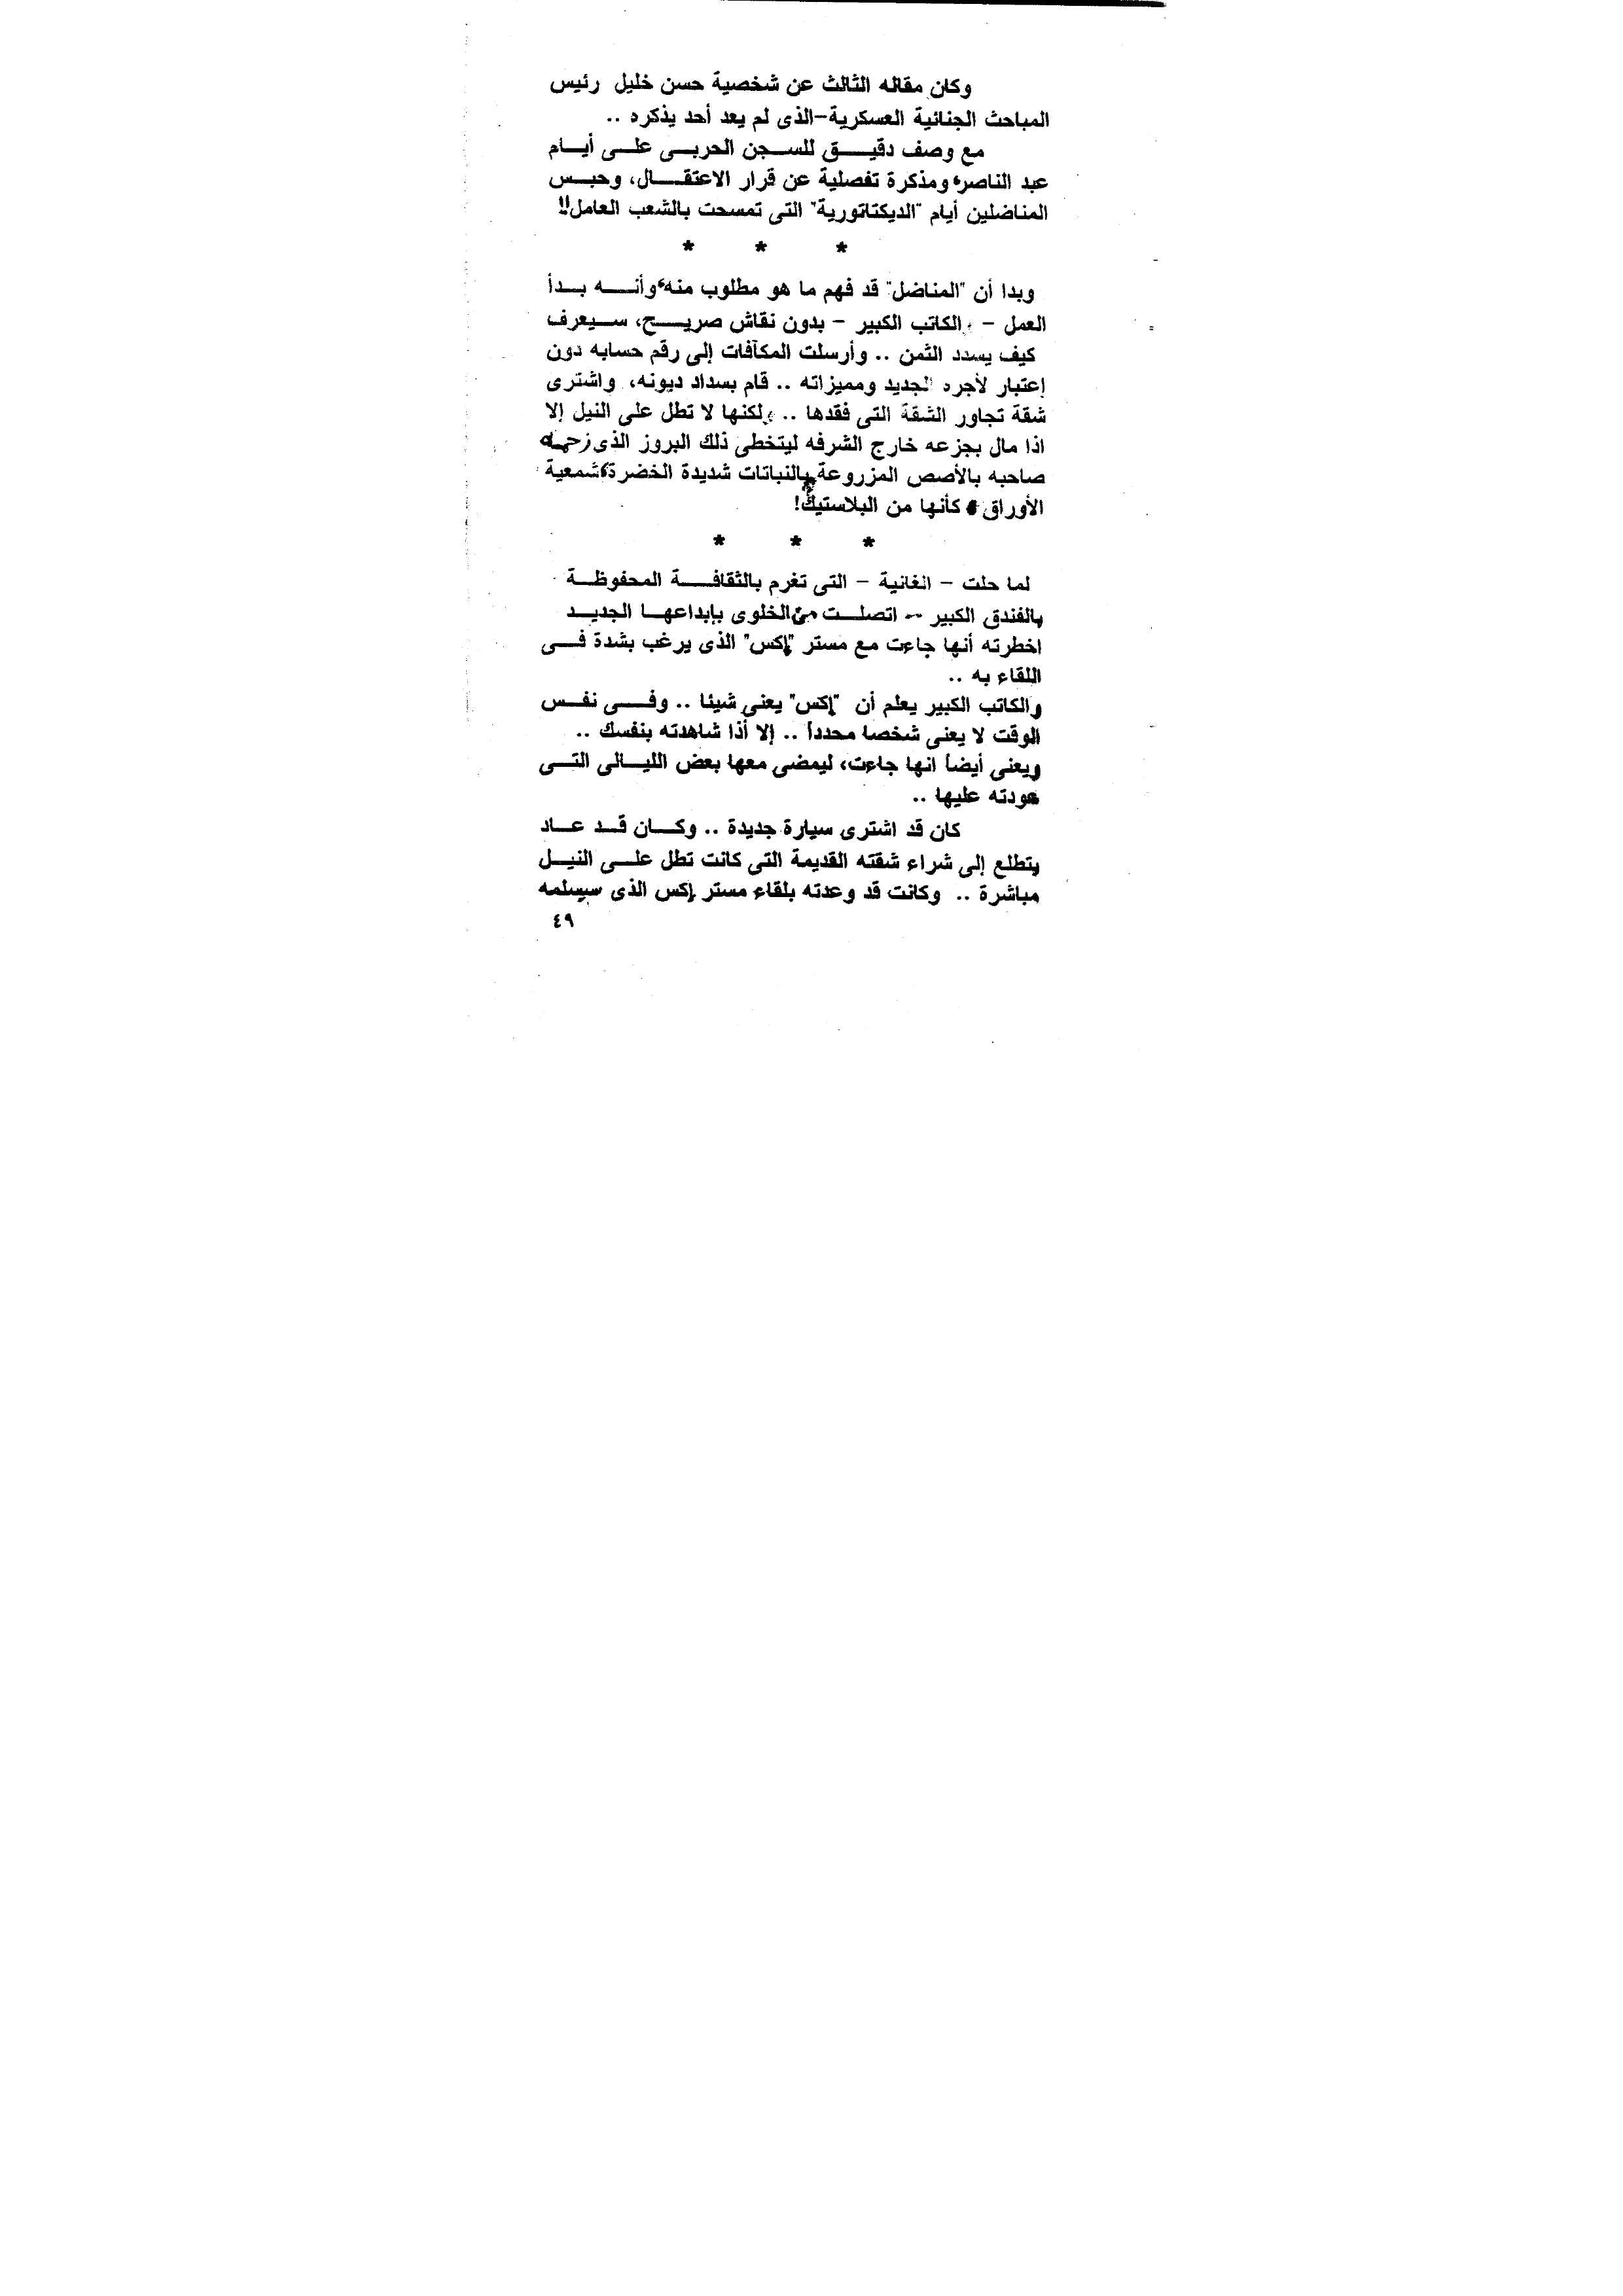 وكان مقاله الثالث عن شخصية حسن خليل رئيس
المباحث الجنائية العسكرية-الذى لم يعد أحد يذكره ..
مع وصف دقيق للسجن الحربى على أيام
عبد الناصر، ومذكرة تفصلية عن قرار الاعتقال، وحبس
المناضلين أيام "الديكتاتورية" التى تمسحت بالشعب العامل!!
* * *
وبدا أن "المناضل" قد فهم ما هو مطلوب منه، وأنه بدأ
العمل - الكاتب الكبير - بدون نقاش صريح، سيعرف
كيف يسدد الثمن .. وأرسلت المكآفات إلى رقم حسابه دون
إعتبار لأجره الجديد ومميزاته .. قام بسداد ديونه، واشترى
شقة تجاور الشقة التى فقدها .. ولكنها لا تطل على النيل إلا
اذا مال بجزعه خارج الشرفه ليتخطى ذلك البروز الذى زحمه
صاحبه بالأصص المزروعة بالنباتات شديدة الخضرة، شمعية
الأوراق، كأنها من البلاستيك!
* * *
لما حلت - الغانية - التى تغرم بالثقافة المحفوظة
بالفندق الكبير - اتصلت من الخلوى بإبداعها الجديد
اخطرته أنها جاءت مع مستر "إكس" الذى يرغب بشدة فى
اللقاء به ..
والكاتب الكبير يعلم أن "إكس" يعنى شيئا .. وفى نفس
الوقت لا يعنى شخصا محدداً .. إلا أذا شاهدته بنفسك ..
ويعنى أيضاً انها جاءت، ليمضى معها بعض الليالى التى
عودته عليها ..
كان قد اشترى سيارة جديدة .. وكان قد عاد
يتطلع إلى شراء شقته القديمة التى كانت تطل على النيل
مباشرة .. وكانت قد وعدته بلقاء مستر إكس الذى سيسلمه
٤٩